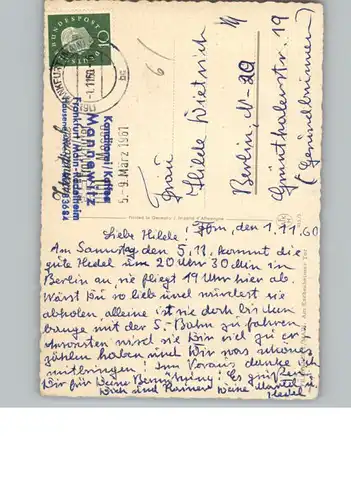 DEUTSCHE BUNDESPOST
10
-1.11.60
5.-9. März 1961
Konditorei / Kaffee
Mannewitz
Frankfurt / Main-Rödelheim
61
Frau
Hilde Dietrich
Berlin, N-20
Grünthalerstr. 19
(Gesundbrunnen)
Printed in Germany / Imprimé d'Allemagne
Ffm, den 1.11.60
Liebe Hilde!
Am Samstag den 5.11. kommt die
gute Hedel um 20 Uhr 30 Min in
Berlin an sie fliegt 19 Uhr hier ab.
Wärst Du so lieb und würdest sie
abholen, alleine ist sie doch bis dem
bange mit der S.-Bahn zu fahren
Ansonsten wird sie Dir viel zu er-
zählen haben und Dir was schönes
mitbringen! Im Voraus danke ich
Dir für Deine Bemühung! Es grüßen
Dich und Rainer Deine Mantel u.
Hedel